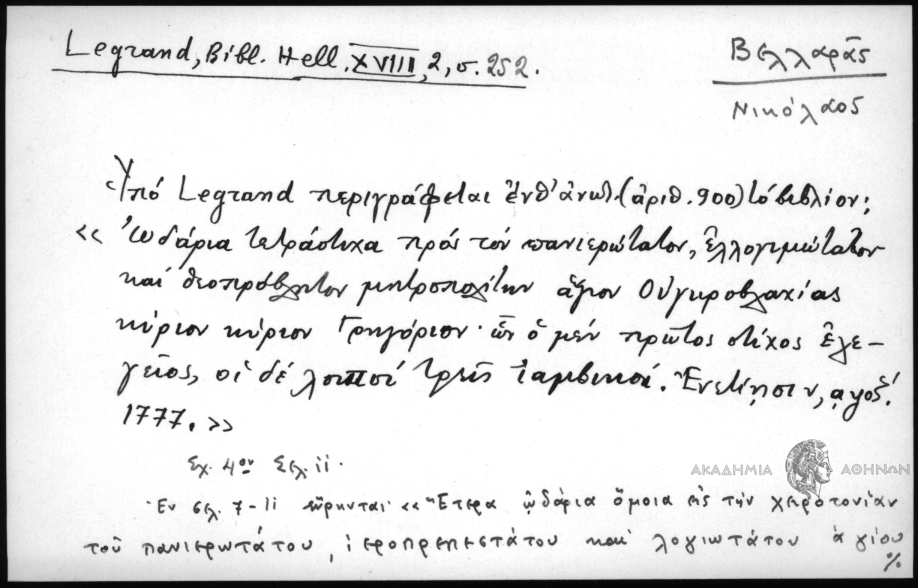 Legrand, Bibl. Hell. XVIII, 2, σ. 252.
Βελλαρᾶς
Νικόλαος
Ὑπό Legrand περιγράφεται ἐνθ' ἀνωτ. (ἀριθ. 900) τό βιβλίον:
« Ὠδάρια τετράστιχα πρός τόν πανιερώτατον, ἐλλογιμώτατον
καί θεοπρόβλητον μητροπολίτην ἅγιον Οὑγκροβλαχίας
κύριον κύριον Γρηγόριον· ὧν ὁ μέν πρῶτος στίχος ἐλε-
γεῖος, οἱ δέ λοιποί τρεῖς ἰαμβικοί. Ἐνετίῃσιν, αψοζ΄.
1777. »
Σχ. 4ον Σελ. 11.
Ἐν σελ. 7-11 εὕρηνται· « Ἕτερα ᾠδάρια ὅμοια εἰς τήν χειροτονίαν
τοῦ πανιερωτάτου, ἱεροπρεπεστάτου καί λογιωτάτου ἁγίου
%
ΑΚΑΔΗΜΙΑ ΑΘΗΝΩΝ